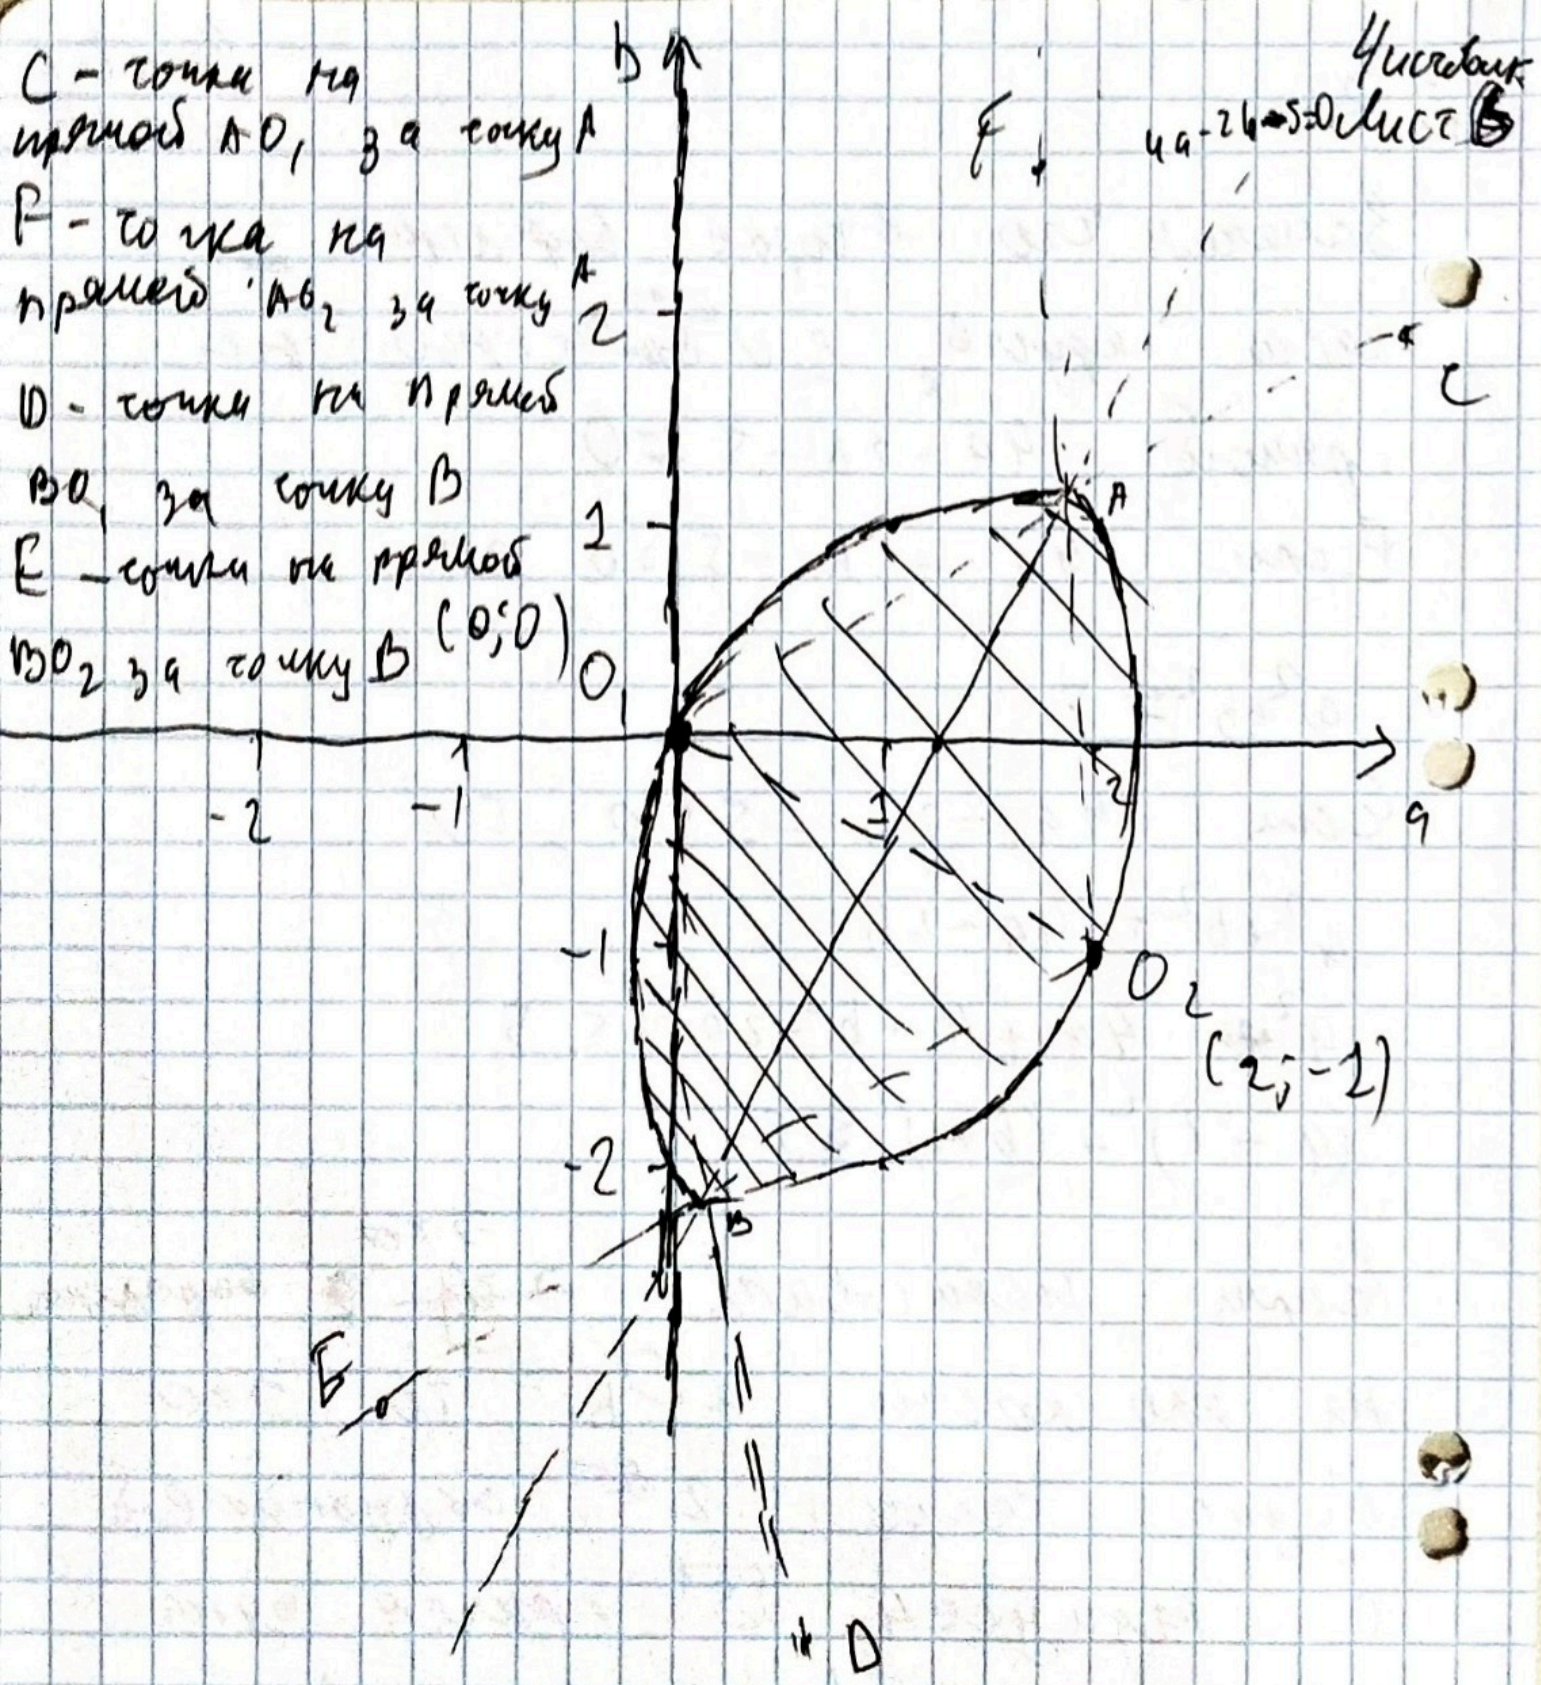 Чистовик
4a-2b-5=0 Лист 6
C - точка на
прямой AO₁ за точку A
F - точка на
прямой AO₂ за точку A
D - точка на прямой
BO₁ за точку B
E - точка на прямой
BO₂ за точку B
b
F
C
2
A
1
(0;0)
O₁
-2
-1
1
2
a
-1
O₂
(2;-1)
-2
B
E
D